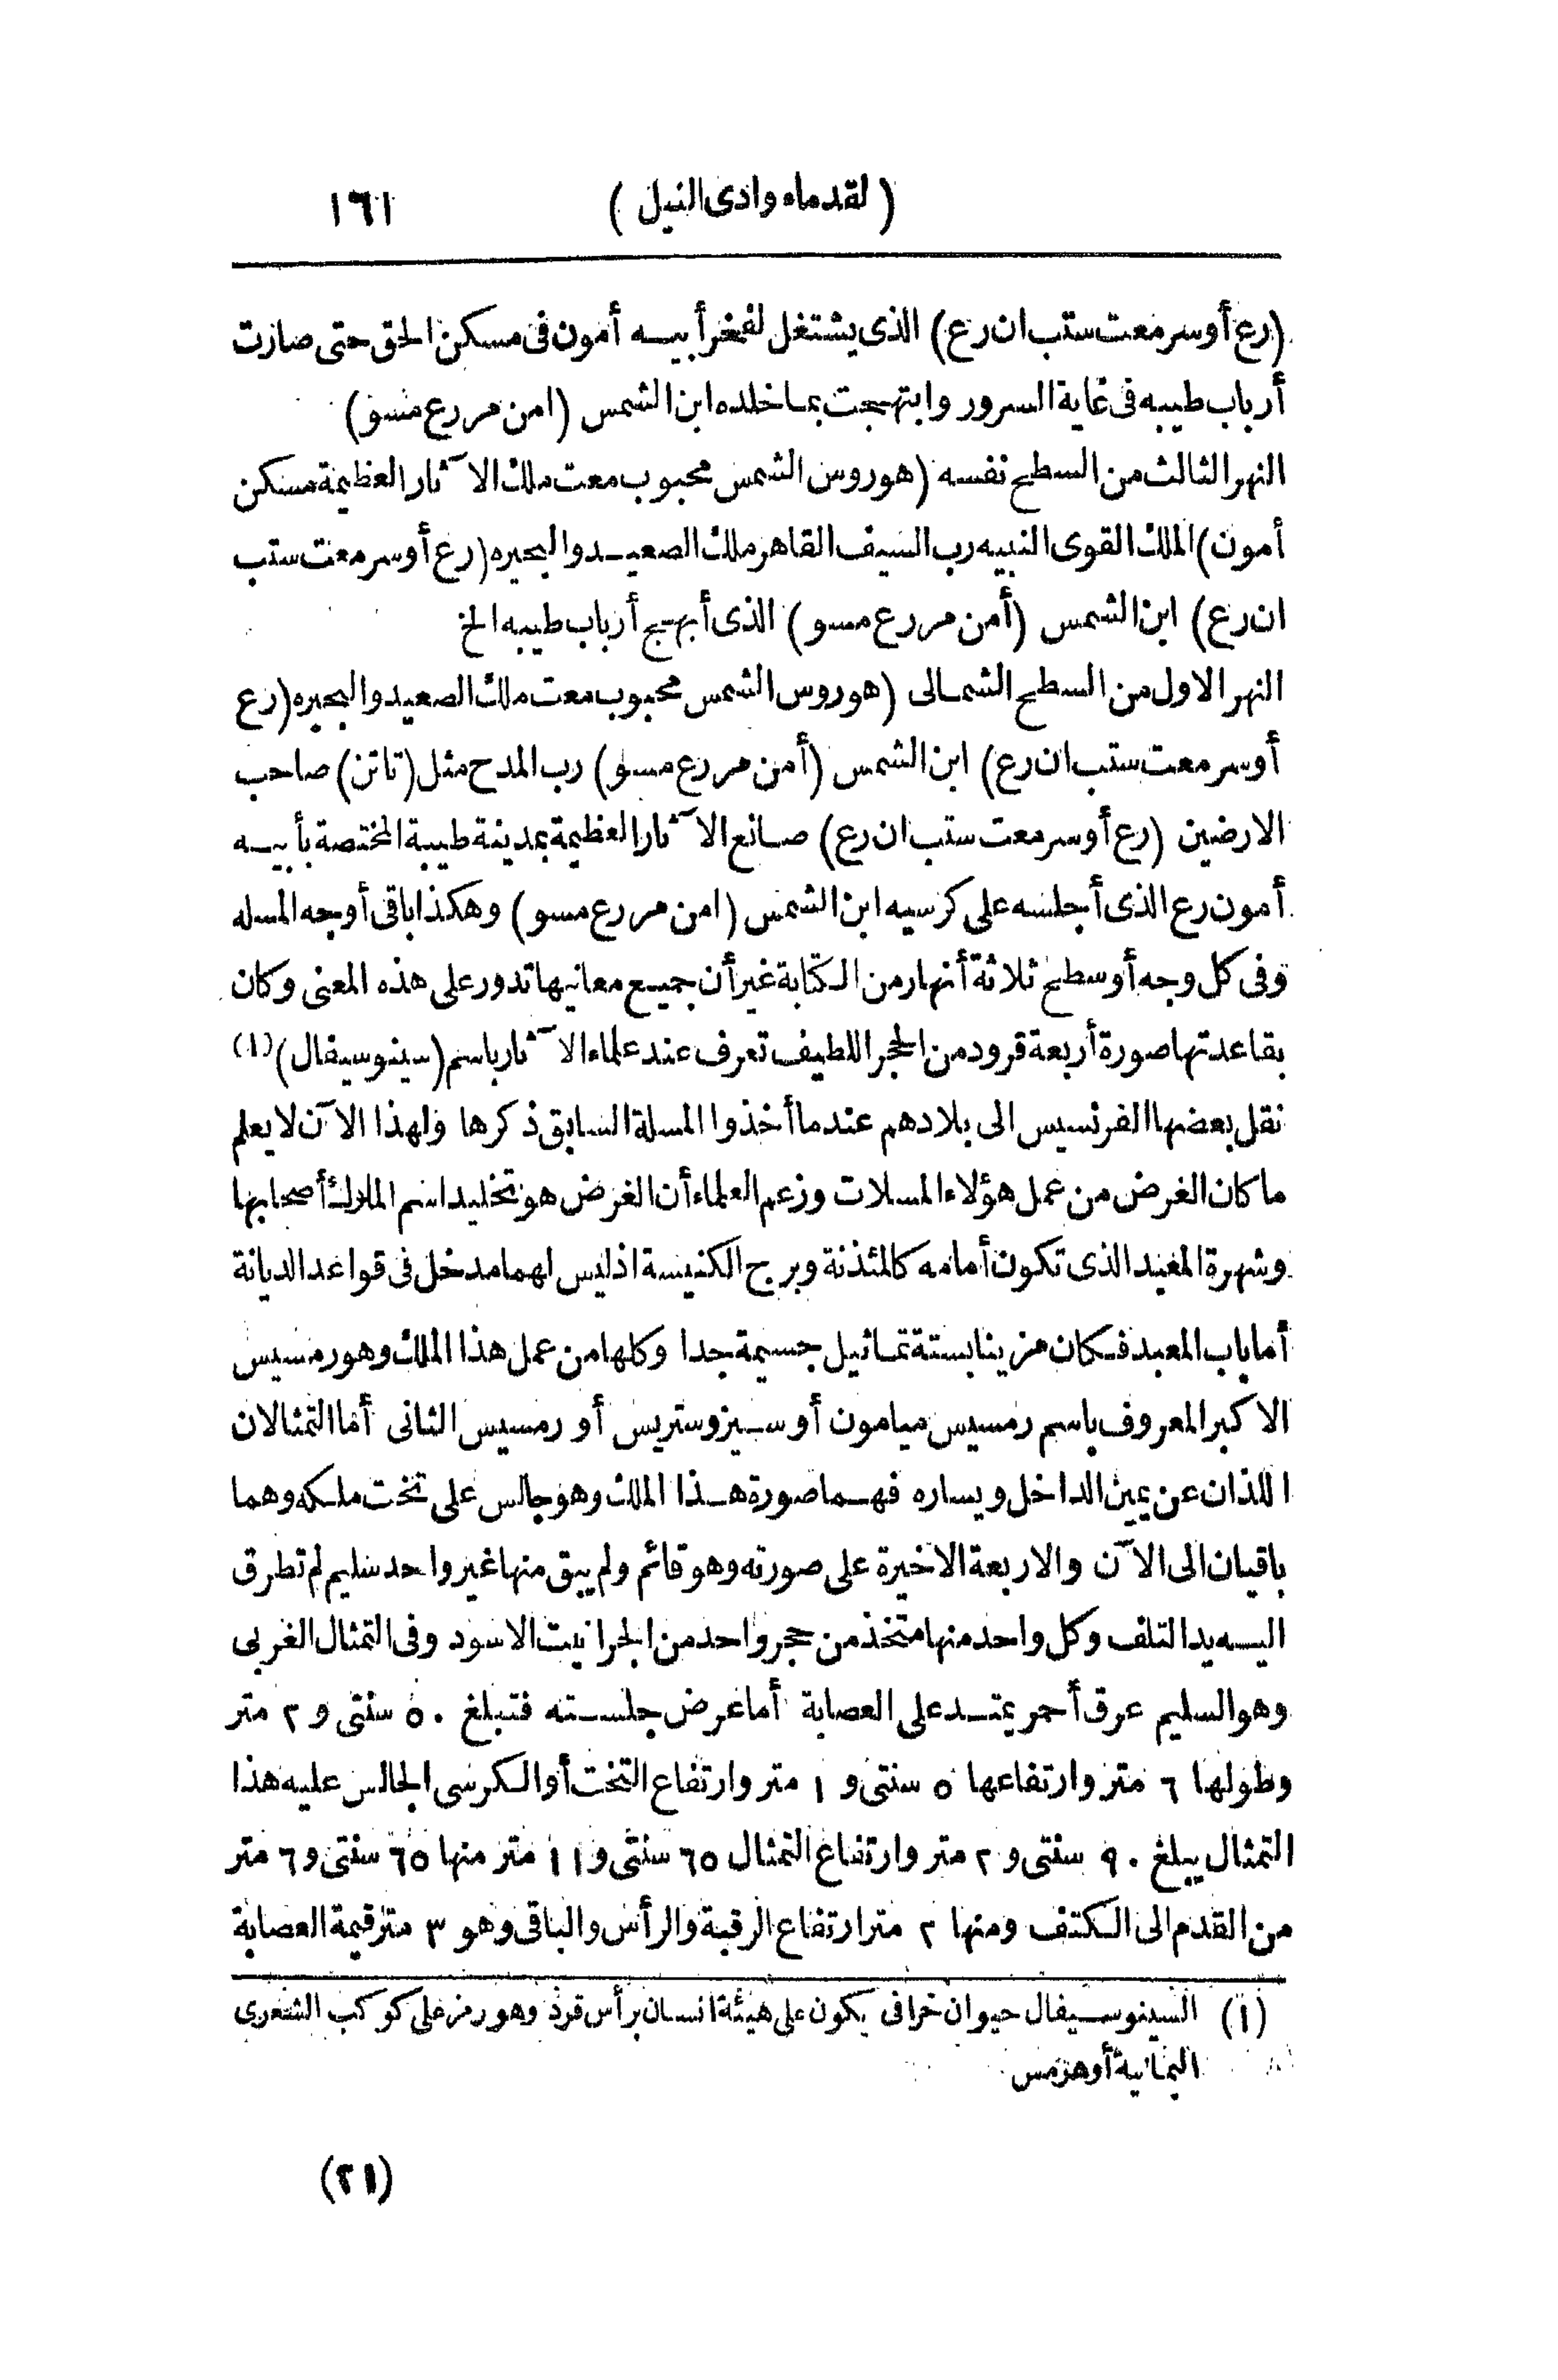 (لقدماء وادى النيل) ١٦١
(رع أوسر معت ستب ان رع) الذى يشتغل لفخر أبيه أمون فى مسكن الحق حتى صارت
أرباب طيبه فى غاية السرور وابتهجت بما خلده ابن الشمس (امن مر رع مسو)
النهر الثالث من السطح نفسه (هوروس الشمس محبوب معت ملك الآثار العظيمة مسكن
أمون) الملك القوى النبيه رب السيف القاهر ملك الصعيد والبحيره (رع أوسر معت ستب
ان رع) ابن الشمس (أمن مر رع مسو) الذى أبهج أرباب طيبه الخ
النهر الاول من السطح الشمالى (هوروس الشمس محبوب معت ملك الصعيد والبحيره (رع
أوسر معت ستب ان رع) ابن الشمس (أمن مر رع مسو) رب المدح مثل (تاتن) صاحب
الارضين (رع أوسر معت ستب ان رع) صانع الآثار العظيمة بمدينة طيبة المختصة بأبيه
أمون رع الذى أجلسه على كرسيه ابن الشمس (امن مر رع مسو) وهكذا باقى أوجه المسله
وفى كل وجه أو سطح ثلاثة أنهار من الكتابة غير أن جميع معانيها تدور على هذه المعنى وكان
بقاعدتها صورة أربعة قرود من الحجر اللطيف تعرف عند علماء الآثار باسم (سينوسيفال) (١)
نقل بعضها الفرنسيس الى بلادهم عندما أخذوا المسلة السابق ذكرها ولهذا الآن لا يعلم
ما كان الغرض من عمل هؤلاء المسلات وزعم العلماء أن الغرض هو تخليد اسم الملوك أصحابها
وشهرة المعبد الذى تكون أمامه كالمئذنة وبرج الكنيسة اذ ليس لهما مدخل فى قواعد الديانة
أما باب المعبد فكان مزينا بستة تماثيل جسيمة جدا وكلها من عمل هذا الملك وهو رمسيس
الاكبر المعروف باسم رمسيس ميامون أو سيزوستريس أو رمسيس الثانى أما التمثالان
اللذان عن يمين الداخل ويساره فهما صورة هذا الملك وهو جالس على تخت ملكه وهما
باقيان الى الآن والاربعة الاخيرة على صورته وهو قائم ولم يبق منها غير واحد سليم لم تطرق
اليه يد التلف وكل واحد منها متخذ من حجر واحد من الجرانيت الاسود وفى التمثال الغربى
وهو السليم عرق أحمر يمتد على العصابة أما عرض جلسته فتبلغ ٥٠ سنتى و ٢ متر
وطولها ٦ متر وارتفاعها ٥ سنتى و ١ متر وارتفاع التخت أو الكرسى الجالس عليه هذا
التمثال يبلغ ٩٠ سنتى و ٢ متر وارتفاع التمثال ٦٥ سنتى و ١١ متر منها ٦٥ سنتى و ٦ متر
من القدم الى الكتف ومنها ٢ متر ارتفاع الرقبة والرأس والباقى وهو ٣ متر قيمة العصابة
(١) السينوسيفال حيوان خرافى يكون على هيئة انسان برأس قرد وهو رمز على كوكب الشعرى
اليمانية أو هرمس
(٢١)